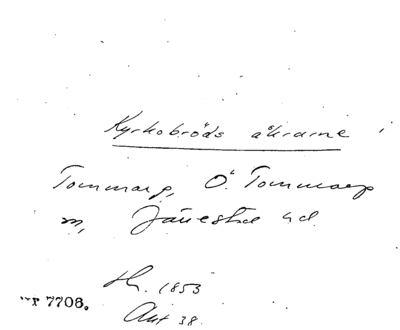 Kyrkobröds åkrarne i
Tommarp, Ö. Tommarp
, Järrestad hd.
1853
Akt 38.
7706.